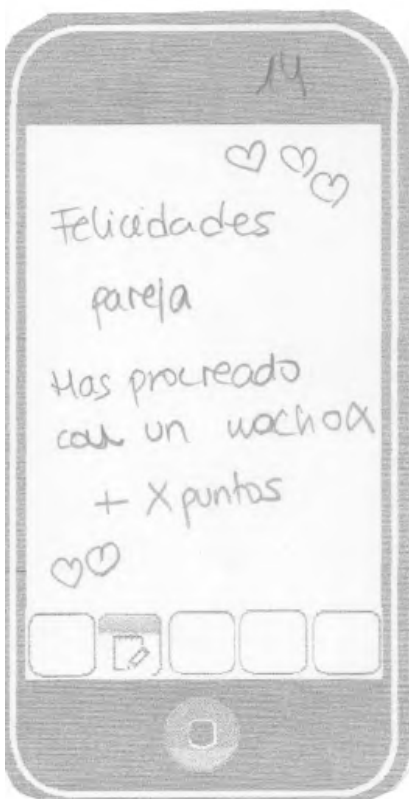 14
Felicidades
pareja
Has procreado
con un machoα
+ X puntos